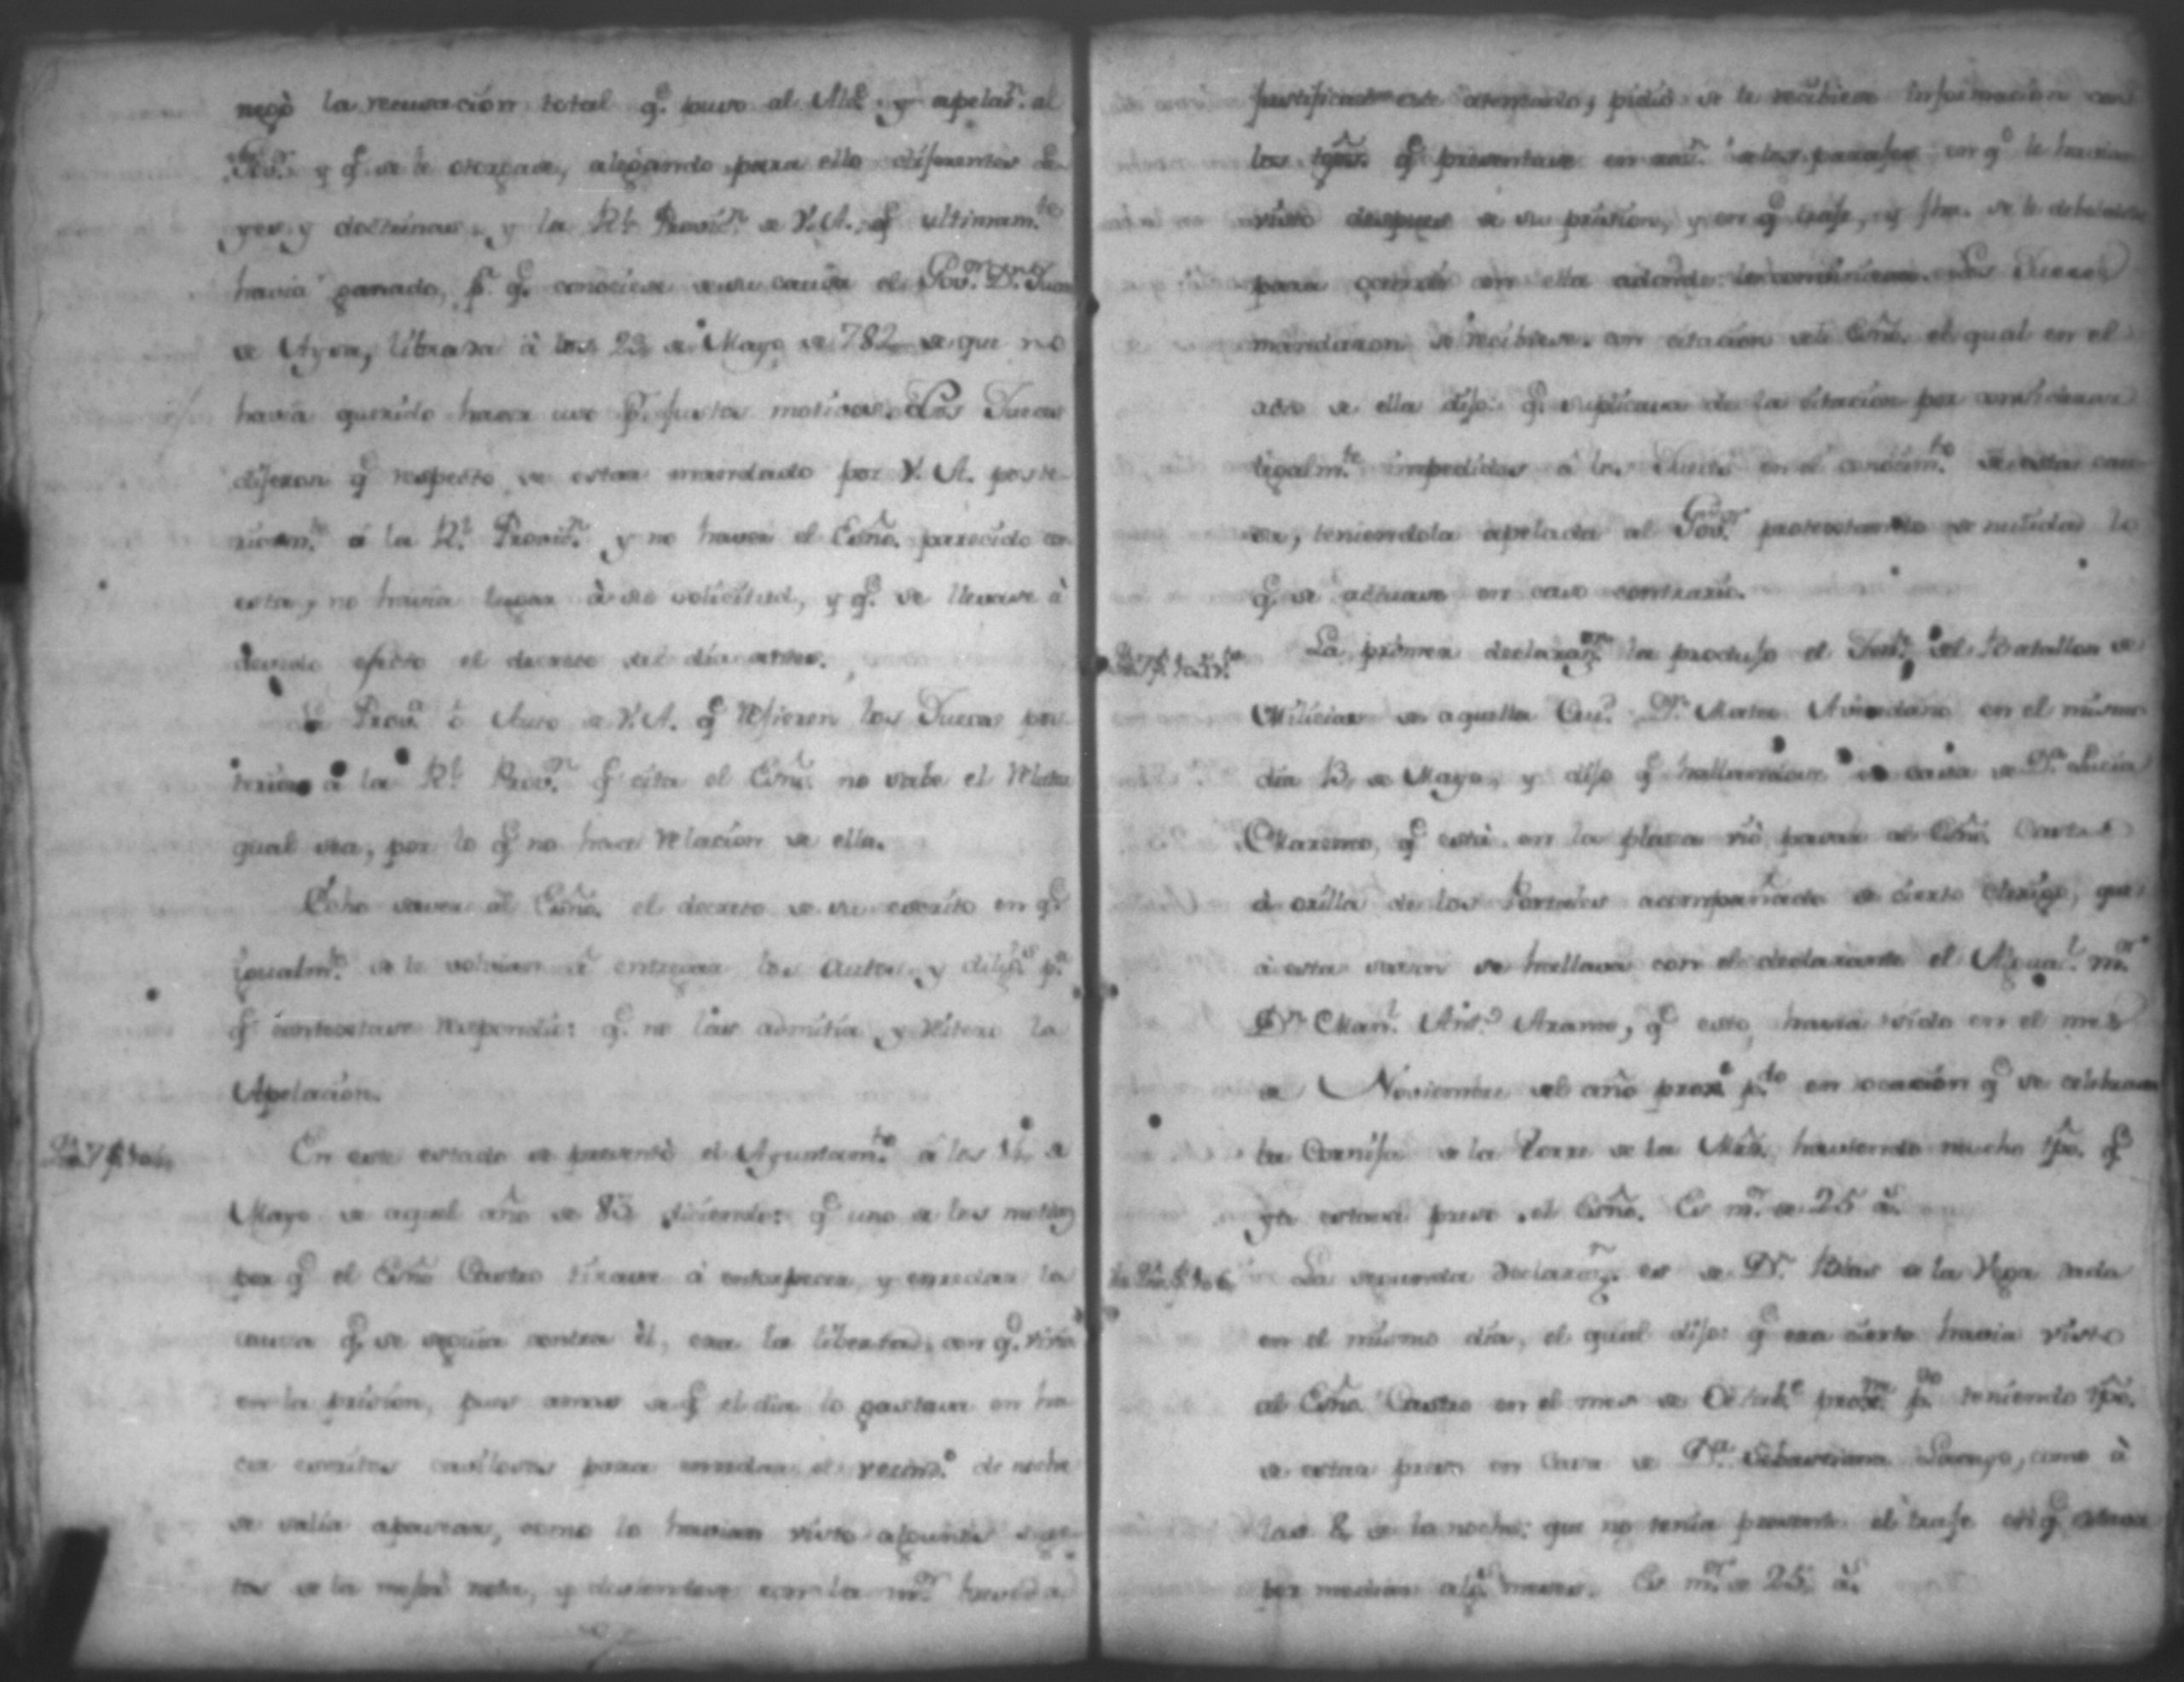 negò la recusacion total q.e puso al Ald.e y apelaz.n al
Gov.or y q.e se le otorgase, alegando para ello diferentes Le-
yes y doctrinas, y la R.l Provis.n de V.A. q.e ultimam.te
havia ganado, p.a q.e conociese de su causa el Gov.or D.n Juan
de Ayssa, librada à los 23 de Mayo de 782 de que no
havia querido hacer uso p.r justos motivos. Los Jueces
dijeron q.e respecto de estar mandado por V. A. poste-
riorm.te à la R.l Provis.n y no haver el Esño. parecido con
esta, no havia lugar à su solicitud, y q.e se llevase à
devido efecto el decreto del dia antes.
La Prov.n ò Auto de V.A. q.e refieren los Jueces pos-
terior à la R.l Prov.n q.e cita el Esño. no sabe el Relator
qual sea, por lo q.e no hace relacion de ella.
Echo saver al Esño. el decreto de su escrito en q.e
igualm.te se le volvian à entregar los Autos y dilig.s p.a
q.e contestase respondió: q.e no los admitia y reitera la
Apelacion.
En este estado se presentò el Ayuntam.to à los 12 de
Mayo de aquel año de 83 diciendo: q.e uno de los motivos
por q.e el Esño Castro tirava à entorpecer, y enredar la
causa q.e se seguia contra él, era la libertad con q.e vivia
en la prision, pues amas de q.e el dia lo gastava en ha-
cer escritos cavilosos para enredar el recurs.o de noche
se salia apasear, como lo havian visto algunos suge-
tos de la mejor nota, y desiendose con la m.or brevedad
justificase este atentado, pidió se le reciviese informacion con
los tgos. q.e presentase en raz.n de los parages en q.e le havian
visto despues de su prision, y en q.e trage, y fho. se le debolviese
para ocurrir con ella adonde le combiniera. Los Jueces
mandaron se reciviese con citacion del Esño. el qual en el
acto de ella dijo: q.e suplicava de la citacion por considerar
legalm.te impedidos à los Jueces en el conocim.to de esta cau-
sa, teniendola apelada al Gov.or protestando de nulidad lo
q.e se actuase en caso contrario.
La primera declaraz.on la produjo el Ten.te del Batallon de
Milicias de aquella Ciu.d D.n Mateo Avendaño en el mismo
dia 13 de Mayo, y dijo q.e hallandose en casa de D.a Lucia
Maremo, q.e està en la plaza vió pasar al Esño. Castro
à orilla de los Portales acompañado de cierto clerigo, que
à esta sason se hallava con el declarante el Alguaz.l m.or
D.n Man.l Ant.o Aramo, q.e esto havia sido en el mes
de Noviembre del año prox.o p.do en ocasion q.e se celebrava
la Cornisa de la Torre de la Mriz. haviendo mucho tpo. q.e
ya estava preso el Esño. Es m.or de 25 a.s
La segunda declaraz.n es de D.n Blas de la Vega dada
en el mismo dia, el qual dijo: q.e era cierto havia visto
al Esño. Castro en el mes de Octub.e prox.mo p.do teniendo tpo.
de estar preso en Casa de D.a Sebastiana Larenzo, como à
las 8 de la noche: que no tenia presente el trage en q.e estava
por mediar alg.s meses. Es m.or de 25 a.s